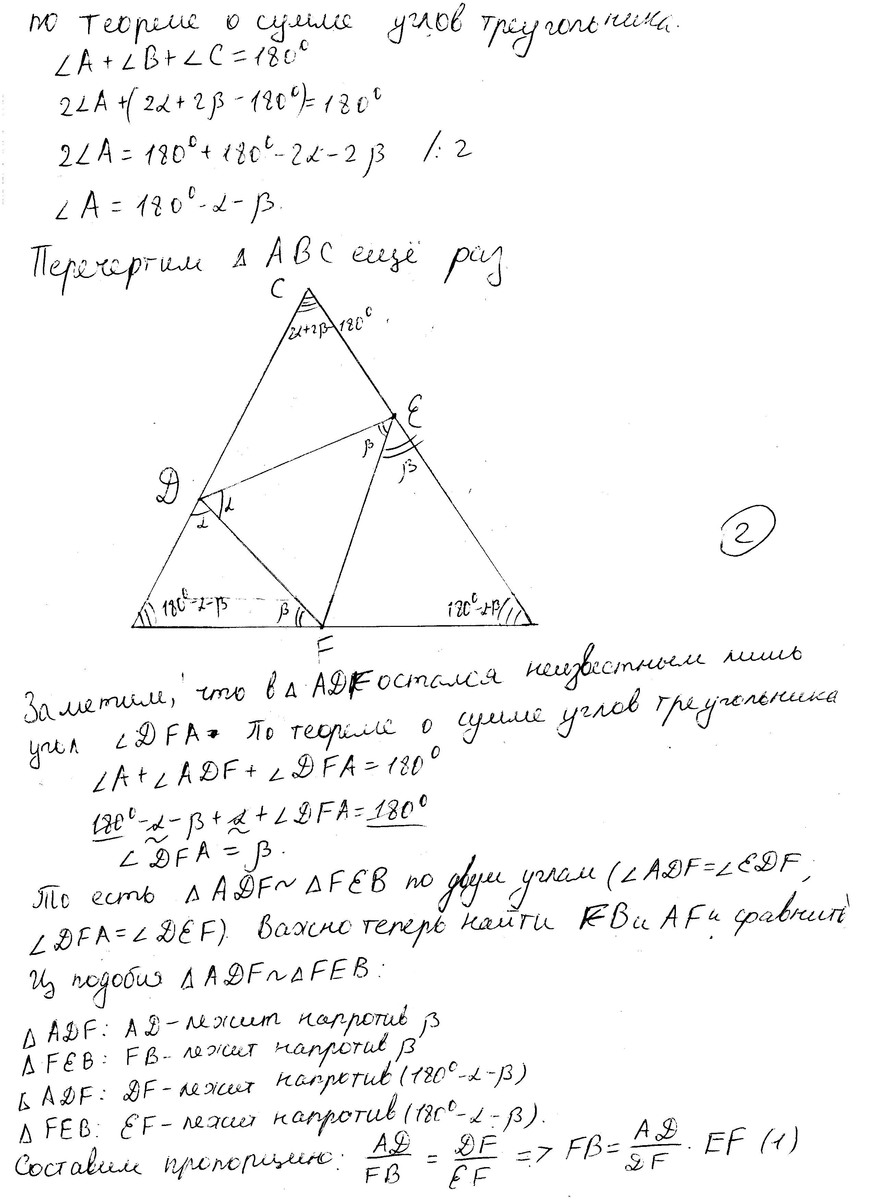 по теореме о сумме углов треугольника.
∠A + ∠B + ∠C = 180°
2∠A + (2α + 2β - 180°) = 180°
2∠A = 180° + 180° - 2α - 2β /: 2
∠A = 180° - α - β.
Перечертим Δ ABC ещё раз
C
2α+2β-180°
E
β
β
D
α
α
2
180°-α-β
β
180°-α-β
F
Заметим, что в Δ ADF остался неизвестным лишь
угол ∠DFA. По теореме о сумме углов треугольника
∠A + ∠ADF + ∠DFA = 180°
180° - α - β + α + ∠DFA = 180°
∠DFA = β.
То есть Δ ADF ~ Δ FEB по двум углам (∠ADF = ∠EDF;
∠DFA = ∠DEF). Важно теперь найти FB и AF и сравнить
Из подобия Δ ADF ~ Δ FEB:
Δ ADF: AD - лежит напротив β
Δ FEB: FB - лежит напротив β
Δ ADF: DF - лежит напротив (180° - α - β)
Δ FEB: EF - лежит напротив (180° - α - β).
Составим пропорцию: AD/FB = DF/EF => FB = AD/DF · EF (1)